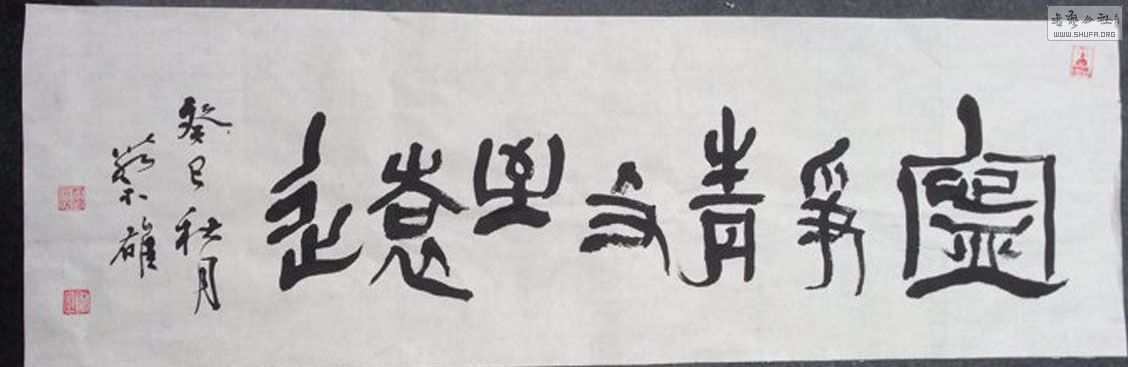 寧靜致遠
癸巳秋月
蔡雄
书艺公社
WWW.SHUFA.ORG